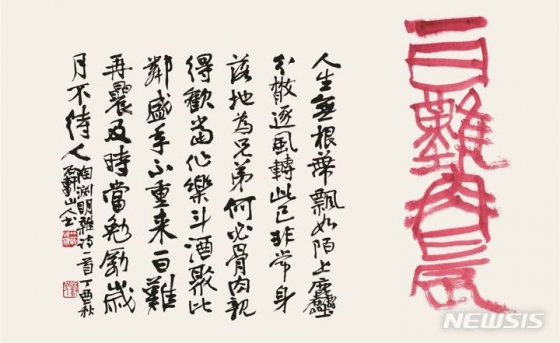 一日難再晨
人生無根蒂飄如陌上塵
分散逐風轉此已非常身
落地為兄弟何必骨肉親
得歡當作樂斗酒聚比
鄰盛年不重来一日難
再晨及時當勉勵歲
月不待人
陶淵明雜詩一首丁酉秋
山人
NEWSIS